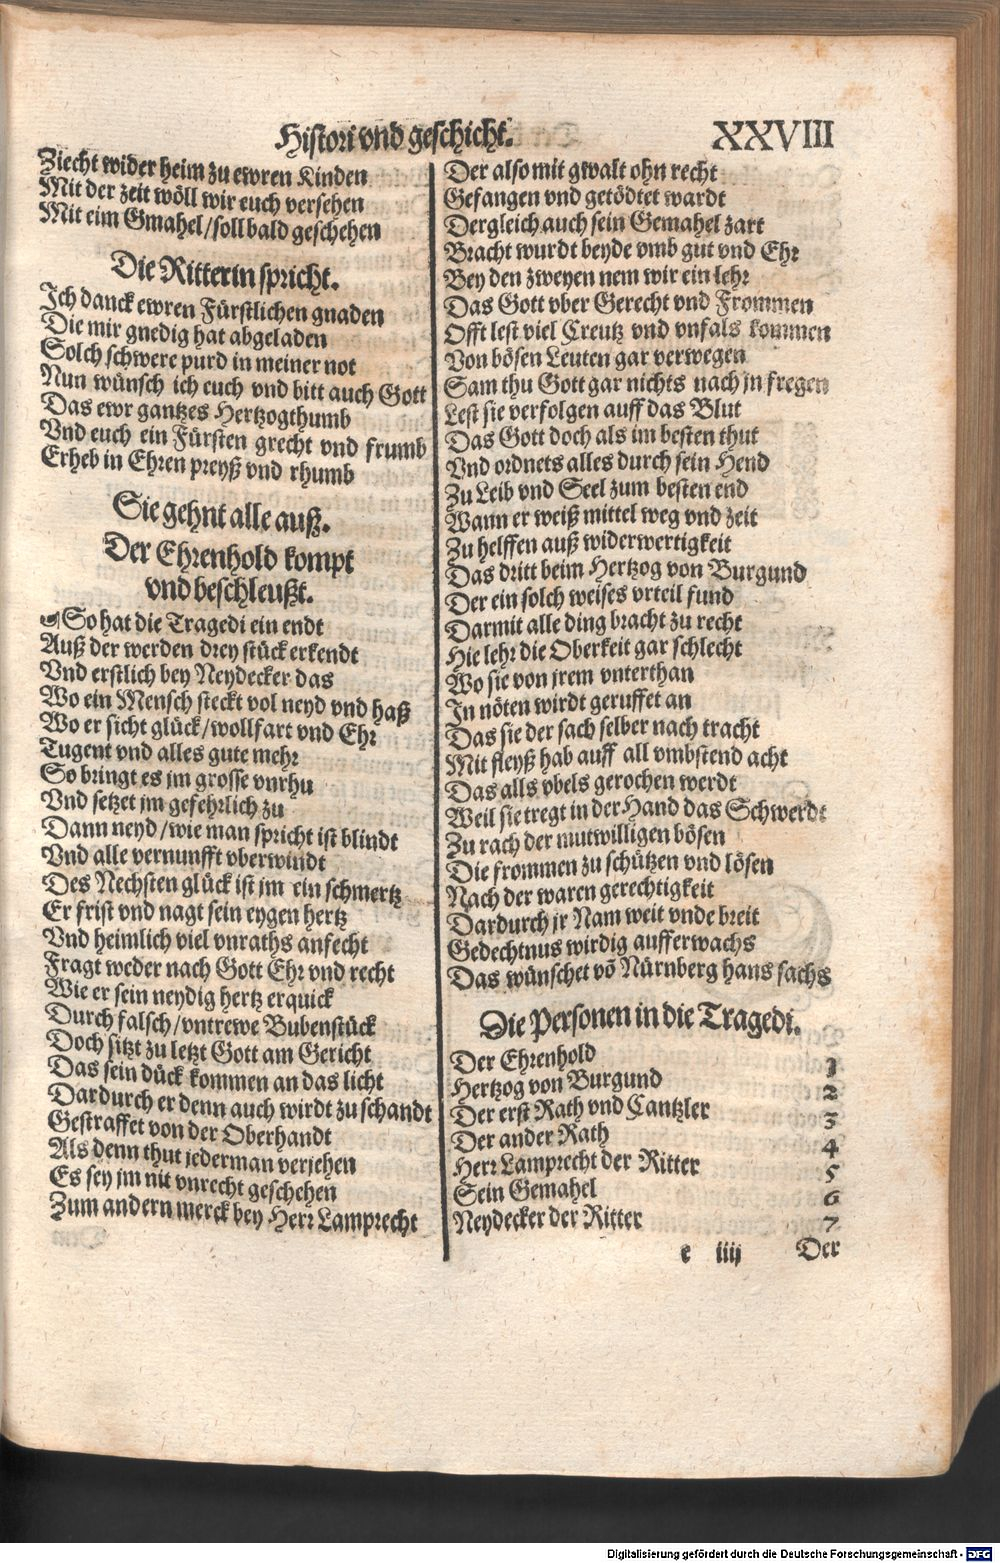 Histori vnd geschicht. XXVIII
Ziecht wider heim zu ewren Kinden
Mit der zeit wöll wir euch versehen
Mit eim Gmahel/soll bald geschehen
Die Ritterin spricht.
Ich danck ewren Fürstlichen gnaden
Die mir gnedig hat abgeladen
Solch schwere purd in meiner not
Nun wünsch ich euch vnd bitt auch Gott
Das ewr gantzes Hertzogthumb
Vnd euch ein Fürsten grecht vnd frumb
Erheb in Ehren preyß vnd rhumb
Sie gehnt alle auß.
Der Ehrenhold kompt
vnd beschleußt.
So hat die Tragedi ein endt
Auß der werden drey stück erkendt
Vnd erstlich bey Neydecker das
Wo ein Mensch steckt vol neyd vnd haß
Wo er sicht glück/wollfart vnd Ehr
Tugent vnd alles gute mehr
So bringt es jm grosse vnrhu
Vnd setzet jm gefehrlich zu
Dann neyd/wie man spricht ist blindt
Vnd alle vernunfft vberwindt
Des Nechsten glück ist jm ein schmertz
Er frist vnd nagt sein eygen hertz
Vnd heimlich viel vnraths anfecht
Fragt weder nach Gott Ehr vnd recht
Wie er sein neydig hertz erquick
Durch falsch/vntrewe Bubenstück
Doch sitzt zu letzt Gott am Gericht
Das sein dück kommen an das licht
Dardurch er denn auch wirdt zu schandt
Gestraffet von der Oberhandt
Als denn thut jederman verjehen
Es sey jm nit vnrecht geschehen
Zum andern merck bey Herr Lamprecht
Der also mit gwalt ohn recht
Gefangen vnd getödtet wardt
Dergleich auch sein Gemahel zart
Bracht wurdt beyde vmb gut vnd Ehr
Bey den zweyen nem wir ein lehr
Das Gott vber Gerecht vnd Frommen
Offt lest viel Creutz vnd vnfals kommen
Von bösen Leuten gar verwegen
Sam thu Gott gar nichts nach jn fregen
Lest sie verfolgen auff das Blut
Das Gott doch als im besten thut
Vnd ordnets alles durch sein Hend
Zu Leib vnd Seel zum besten end
Wann er weiß mittel weg vnd zeit
Zu helffen auß widerwertigkeit
Das dritt beim Hertzog von Burgund
Der ein solch weises vrteil fund
Darmit alle ding bracht zu recht
Hie lehr die Oberkeit gar schlecht
Wo sie von jrem vnterthan
In nöten wirdt geruffet an
Das sie der sach selber nach tracht
Mit fleyß hab auff all vmbstend acht
Das alls vbels gerochen werdt
Weil sie tregt in der Hand das Schwerdt
Zu rach der mutwilligen bösen
Die frommen zu schützen vnd lösen
Nach der waren gerechtigkeit
Dardurch jr Nam weit vnde breit
Gedechtnus wirdig aufferwachs
Das wünschet võ Nürnberg hans sachs
Die Personen in die Tragedi.
Der Ehrenhold 1
Hertzog von Burgund 2
Der erst Rath vnd Cantzler 3
Der ander Rath 4
Herr Lamprecht der Ritter 5
Sein Gemahel 6
Neydecker der Ritter 7
e iiij Der
Digitalisierung gefördert durch die Deutsche Forschungsgemeinschaft - DFG